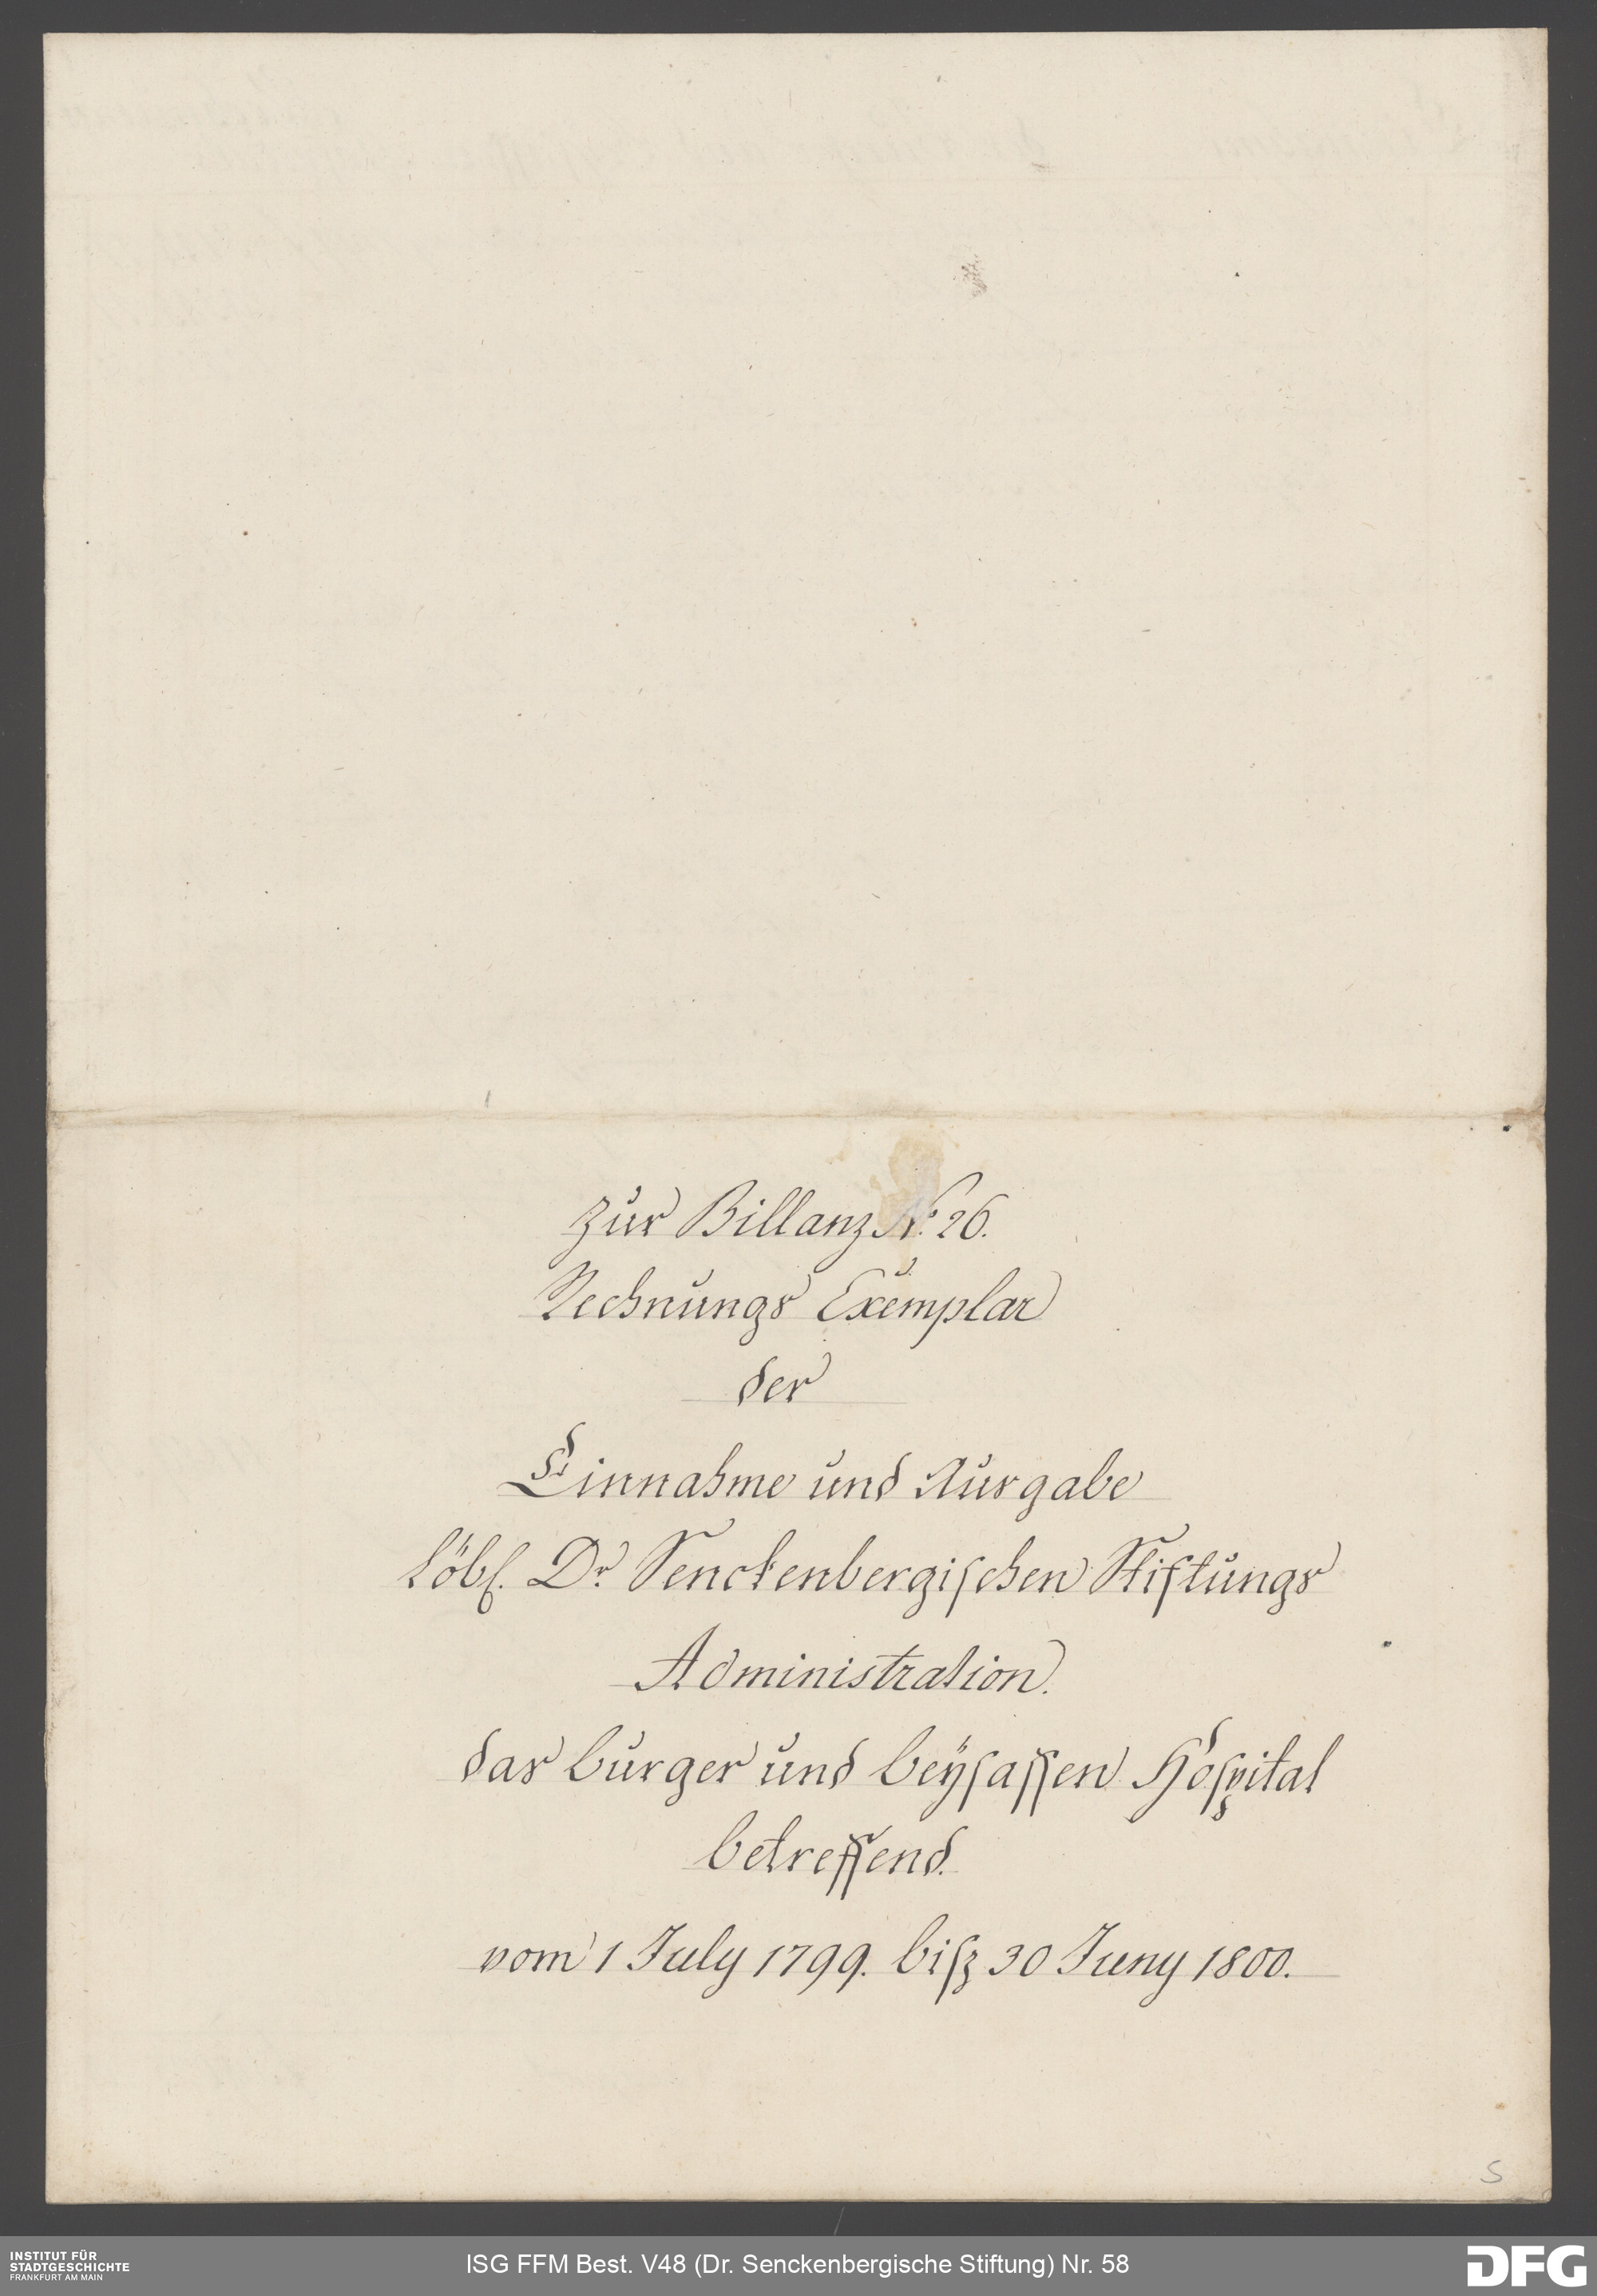 zur Billanz N.º 26.
Rechnungs Exemplar
der
Einnahme und Ausgabe
löbl. Dr. Senckenbergischen Stiftungs
Administration.
das burger und beÿsassen Hospital
betreffend.
vom 1 July 1799. bisz 30 Juny 1800.
5
INSTITUT FÜR
STADTGESCHICHTE
FRANKFURT AM MAIN
ISG FFM Best. V48 (Dr. Senckenbergische Stiftung) Nr. 58
DFG